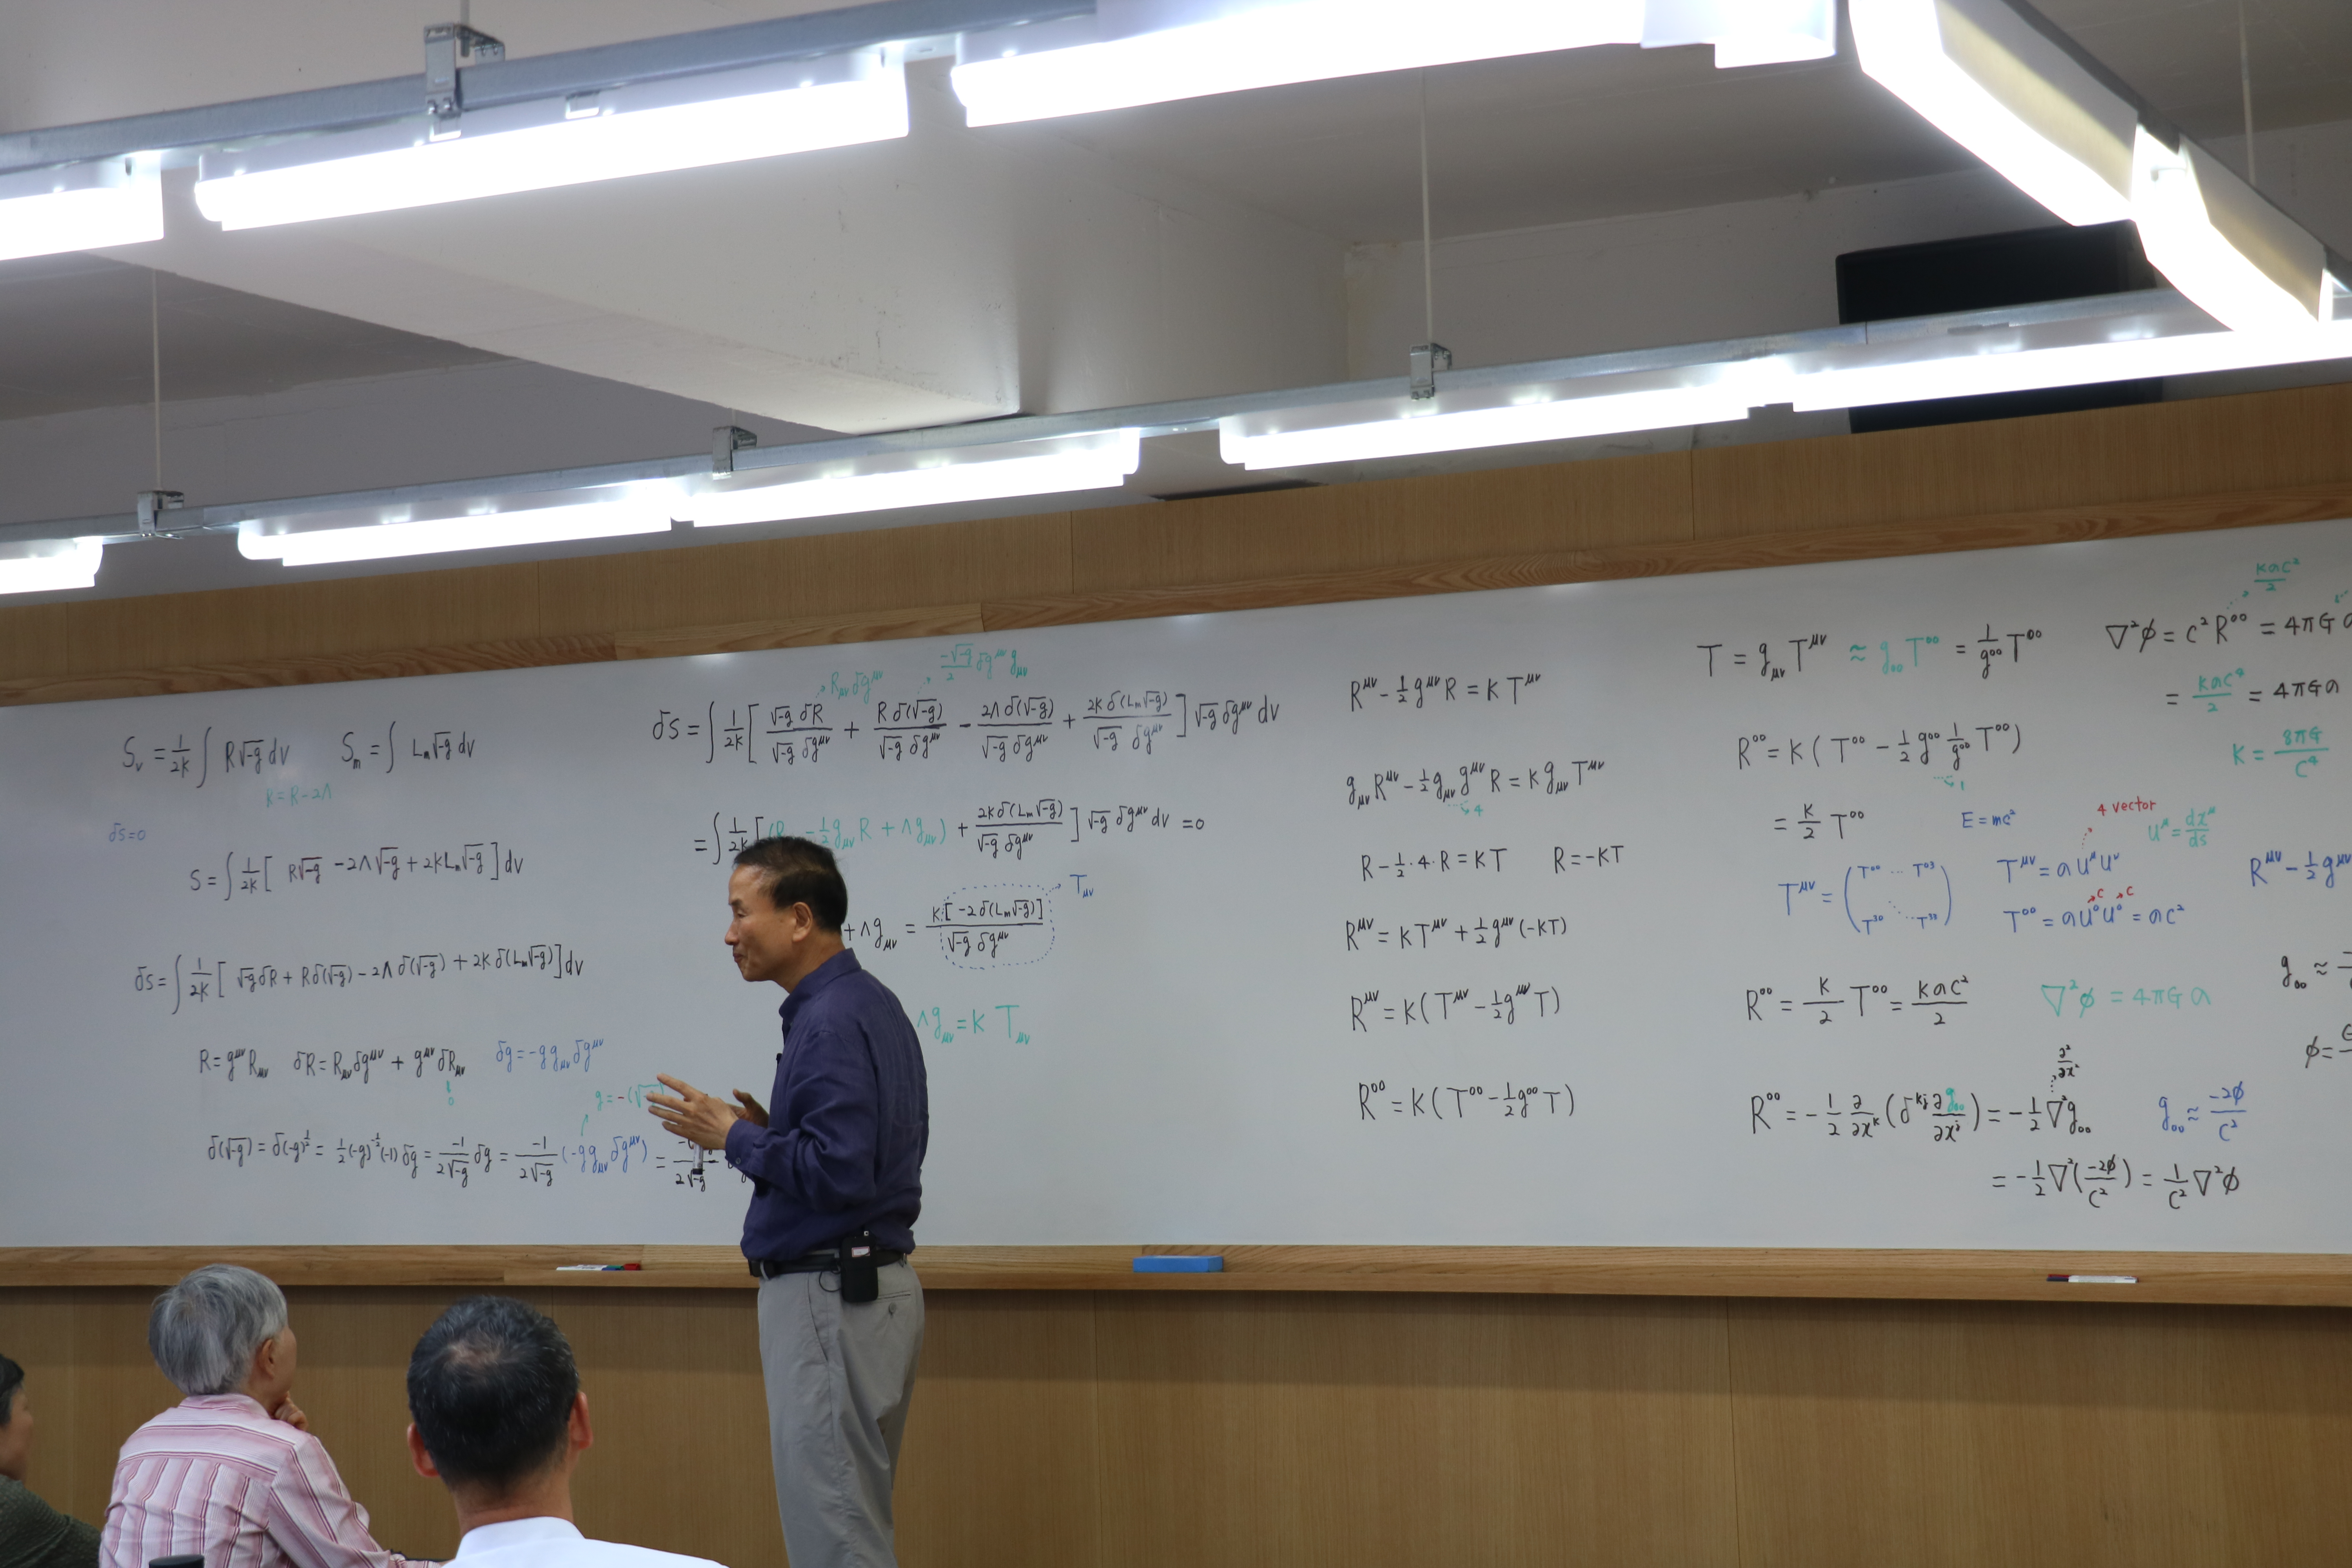 S_v = 1/2K ∫ R√-g dv    S_m = ∫ L_m √-g dv
K = R-2Λ
δS=0
S = ∫ 1/2K [ R√-g - 2Λ√-g + 2KL_m√-g ] dv
δS = ∫ 1/2K [ √-g δR + Rδ(√-g) - 2Λδ(√-g) + 2Kδ(L_m√-g) ] dv
R = g^μν R_μν    δR = R_μν δg^μν + g^μν δR_μν    δg = -g g_μν δg^μν
0
g = -(√
δ(√-g) = δ(-g)^1/2 = 1/2 (-g)^-1/2 (-1) δg = -1/2√-g δg = -1/2√-g (-g g_μν δg^μν) =
2√-g
R_μν δg^μν    -√-g/2 δg^μν g_μν
δS = ∫ 1/2K [ √-g δR/√-g δg^μν + Rδ(√-g)/√-g δg^μν - 2Λδ(√-g)/√-g δg^μν + 2Kδ(L_m√-g)/√-g δg^μν ] √-g δg^μν dv
= ∫ 1/2K [ (R - 1/2 g_μν R + Λg_μν) + 2Kδ(L_m√-g)/√-g δg^μν ] √-g δg^μν dv = 0
T_μν
+ Λg_μν = K[-2δ(L_m√-g)]/√-g δg^μν
Λg_μν = K T_μν
R^μν - 1/2 g^μν R = K T^μν
g_μν R^μν - 1/2 g_μν g^μν R = K g_μν T^μν
4
R - 1/2·4·R = KT    R = -KT
R^μν = KT^μν + 1/2 g^μν (-KT)
R^μν = K(T^μν - 1/2 g^μν T)
R^00 = K(T^00 - 1/2 g^00 T)
T = g_μν T^μν ≈ g_00 T^00 = 1/g^00 T^00
R^00 = K(T^00 - 1/2 g^00 1/g^00 T^00)
1
= K/2 T^00    E = mc²
4 vector
U^μ = dx^μ/ds
T^μν = (T^00 ··· T^03 T^30 ··· T^33)    T^μν = ρ U^μ U^ν
C C
T^00 = ρ U^0 U^0 = ρC²
R^00 = K/2 T^00 = KρC²/2    ∇²φ = 4πGρ
∂²/∂x²
R^00 = -1/2 ∂/∂x^k (δ^kj ∂g_00/∂x^j) = -1/2 ∇² g_00    g_00 ≈ -2φ/C²
= -1/2 ∇² (-2φ/C²) = 1/C² ∇²φ
KρC²/2
∇²φ = C² R^00 = 4πG
= KρC⁴/2 = 4πGρ
K = 8πG/C⁴
R^μν - 1/2 g^μν
g_00 ≈
φ =